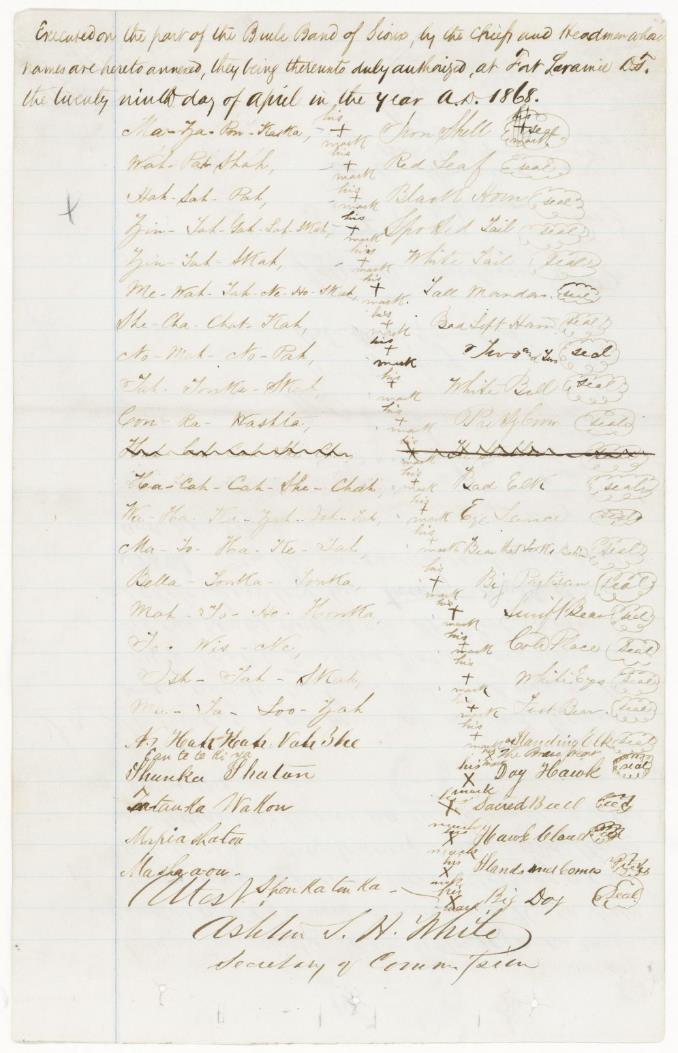 Executed on the part of the Brule Band of Sioux, by the chiefs and Headmen whose
names are hereto annexed, they being thereunto duly authorized, at Fort Laramie D.T.
the twenty ninth day of April in the year A.D. 1868.
Ma-Za-Pon-Kaska, his + mark Iron Shell his + mark seal
Wah-Pat-Shah, his + mark Red Leaf seal
Hah-Sah-Pah, his + mark Black Horn seal
Zin-Tah-Gah-Lat-Skah, his + mark Spotted Tail seal
Zin-Tah-Skah, his + mark White Tail seal
Me-Wah-Tah-Ne-Ho-Skah, his + mark. Tall Mandan seal
She-Cha-Chat-Kah, his + mark Bad Left Hand seal
No-Mah-No-Pah, his + mark Two and Two seal
Tah-Tonka-Skah, his + mark White Bull seal
Con-Ra-Washta, his + mark Pretty Coon seal
his X mark
Ha-Cah-Cah-She-Chah, his + mark Bad Elk seal
his + mark Eye Lance seal
Ma-To-Ha-Ke-Tah, his + mark Bear that looks behind seal
Bella-Tonka-Tonka, his + mark Big Partisan seal
Mah-To-Ho-Honka, his + mark Swift Bear seal
To-Wis-Ne, his + mark Cold Place seal
Ish-Tah-Skah, his + mark White Eyes seal
Ma-Ta-Loo-Zah his + mark Fast Bear seal
As Hah Hah Nah She his + mark Standing Elk seal
Can te te ki ya his The Brave Heart
Shunka Shaton his X mark Day Hawk seal
Tatanka Wakon X mark Sacred Bull seal
Mapia shaton X mark Hawk Cloud
Masha a ow his X Stands and Comes
Attest. Shon ka ton ka his X mark Big Dog seal
Ashton S. H. White
Secretary of Commission